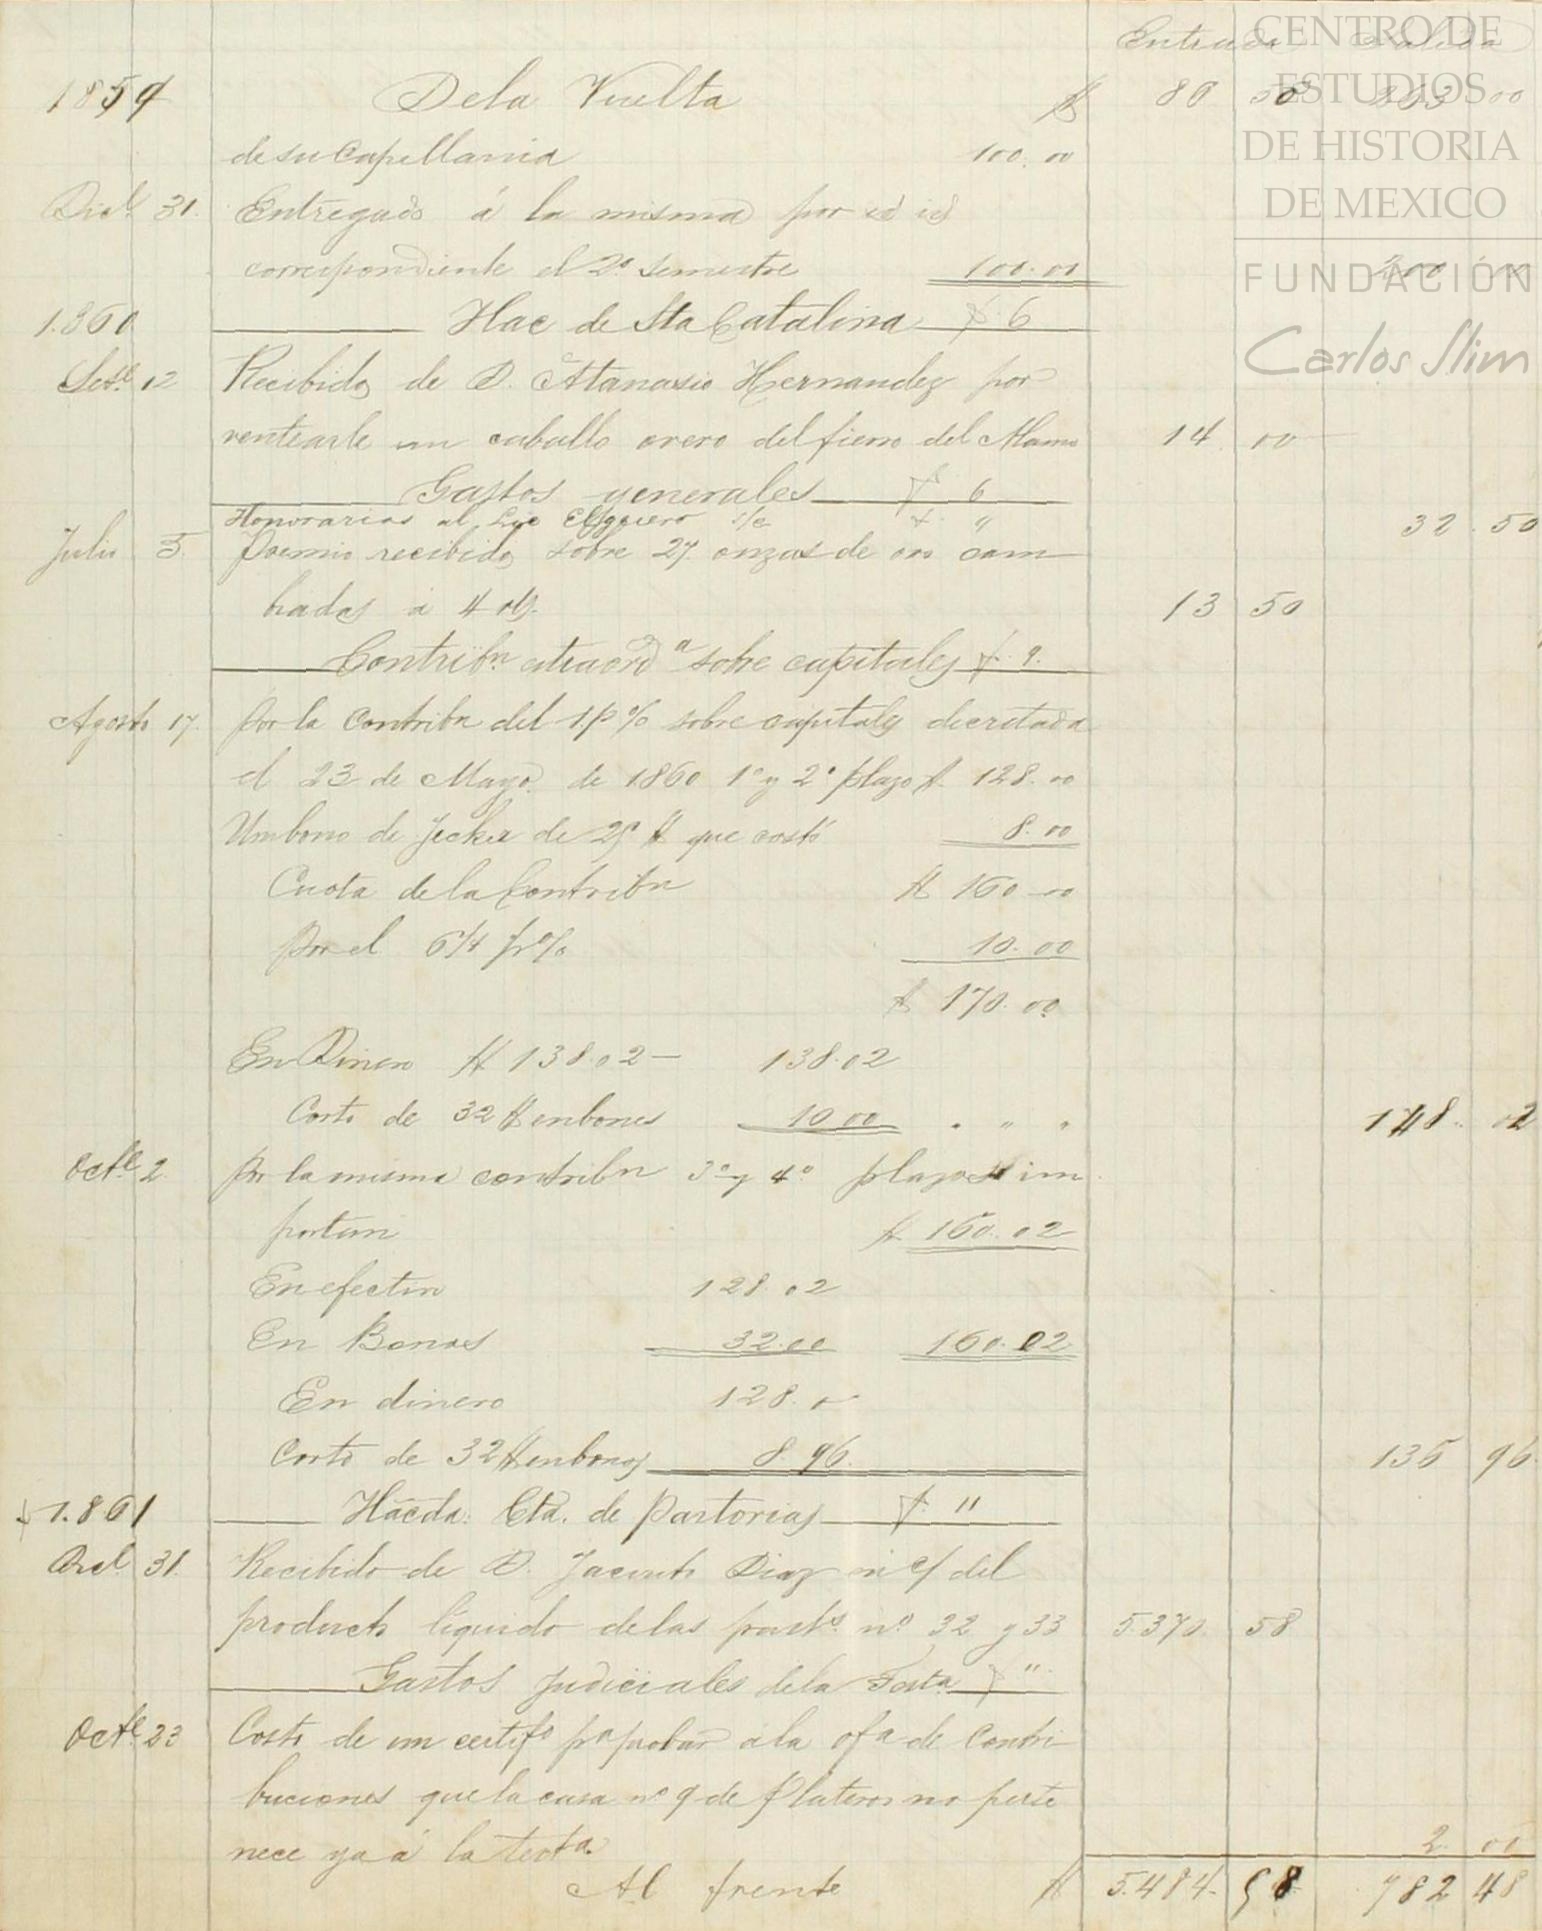 Entrada Salida
CENTRO DE
ESTUDIOS
DE HISTORIA
DE MEXICO
FUNDACIÓN
Carlos Slim
1859 De la Vuelta $ 86 50 263 00
de su Capellania 100.00
Dice. 31. Entregado á la misma por id id
correspondiente el 2º semestre 100.00 200 00
1.860 Hac de Sta Catalina f. 6
Sete 12 Recibido de D. Atanasio Hernandez por
ventearle un caballo overo del fierro del Marno 14 00
Gastos generales f 6
Honorarios al Lic Elguero s/c f. " 32.50
Julio 5. Premio recibido sobre 27 onzas de oro cam
biadas á 4 rls. 13 50
Contribn. estraord.a sobre capitales f. 9.
Agosto 17. Por la Contribn del 1 p% sobre capitales decretada
el 23 de Mayo de 1860 1º y 2º plazo $. 128.00
Un bono de Jecker de 25 $ que costó 8.00
Cuota de la Contribn $ 160-00
Por el 6¼ p% 10.00
$ 170.00
En Dinero $ 138.02 - 138.02
Costo de 32 $ en bonos 10 00 " " " 148.. 02
Octe 2. Por la misma contribn 3º y 4º plazo im
portan $ 160.02
En efectivo 128.02
En Bonos 32.00 160.02
En dinero 128.0
Costo de 32 $ en bonos 8.96. 136 96
1.861 Hacda: Cta. de Pastorias f. "
Dice. 31. Recibido de D. Jacinto Diaz del
producto líquido de las past.s nº 32 y 33 5.370. 58
Gastos Judiciales de la Testa f "
Octe 23 Costo de un certifo pa probar a la ofa de Contri
buciones que la casa nº 9 de Plateros no perte
nece ya á la testa. 2. 00
Al frente $ 5.484. 58 782 48